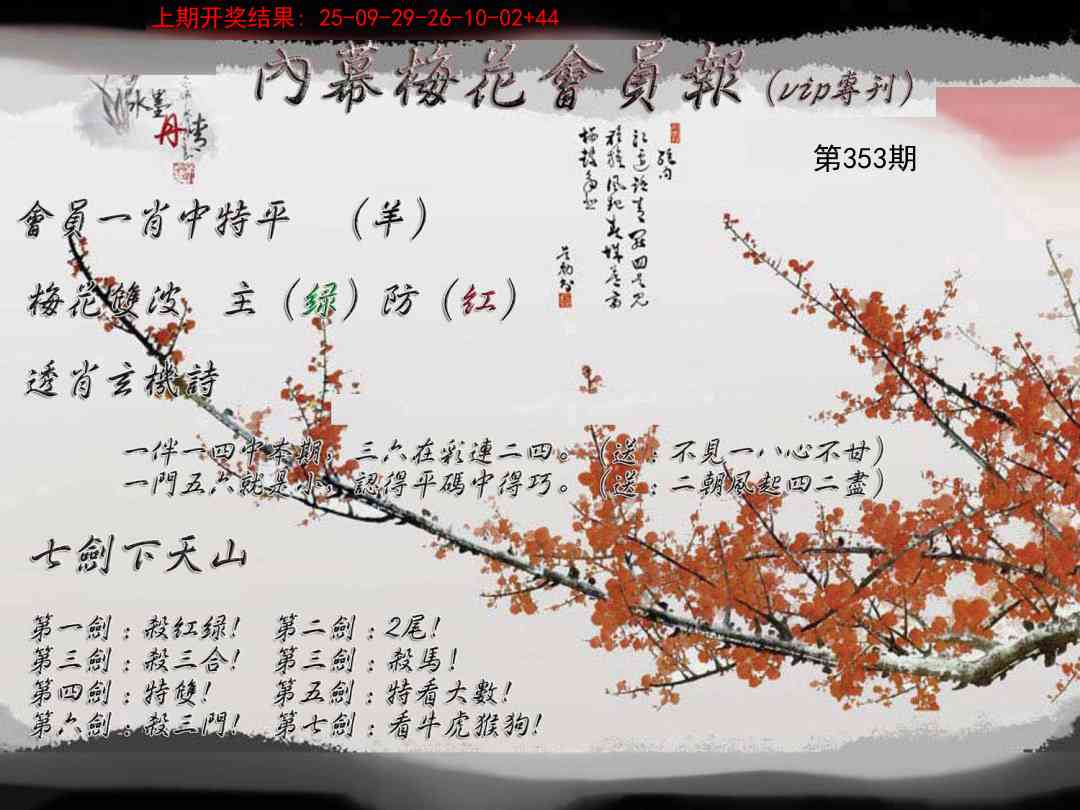 上期开奖结果: 25-09-29-26-10-02+44
內幕梅花會員報(vip專刊)
水墨
丹情
第353期
絕句
會員一肖中特平 (羊)
梅花雙波 主(绿)防(紅)
透肖玄機詩
一伴一四中本期,三六在彩連二四。(送:不見一八心不甘)
一門五六就是小,認得平碼中得巧。(送:二朝風起四二盡)
七劍下天山
第一劍:殺紅绿! 第二劍:2尾!
第三劍:殺三合! 第三劍:殺馬!
第四劍:特雙! 第五劍:特看大數!
第六劍:殺三門! 第七劍:看牛虎猴狗!